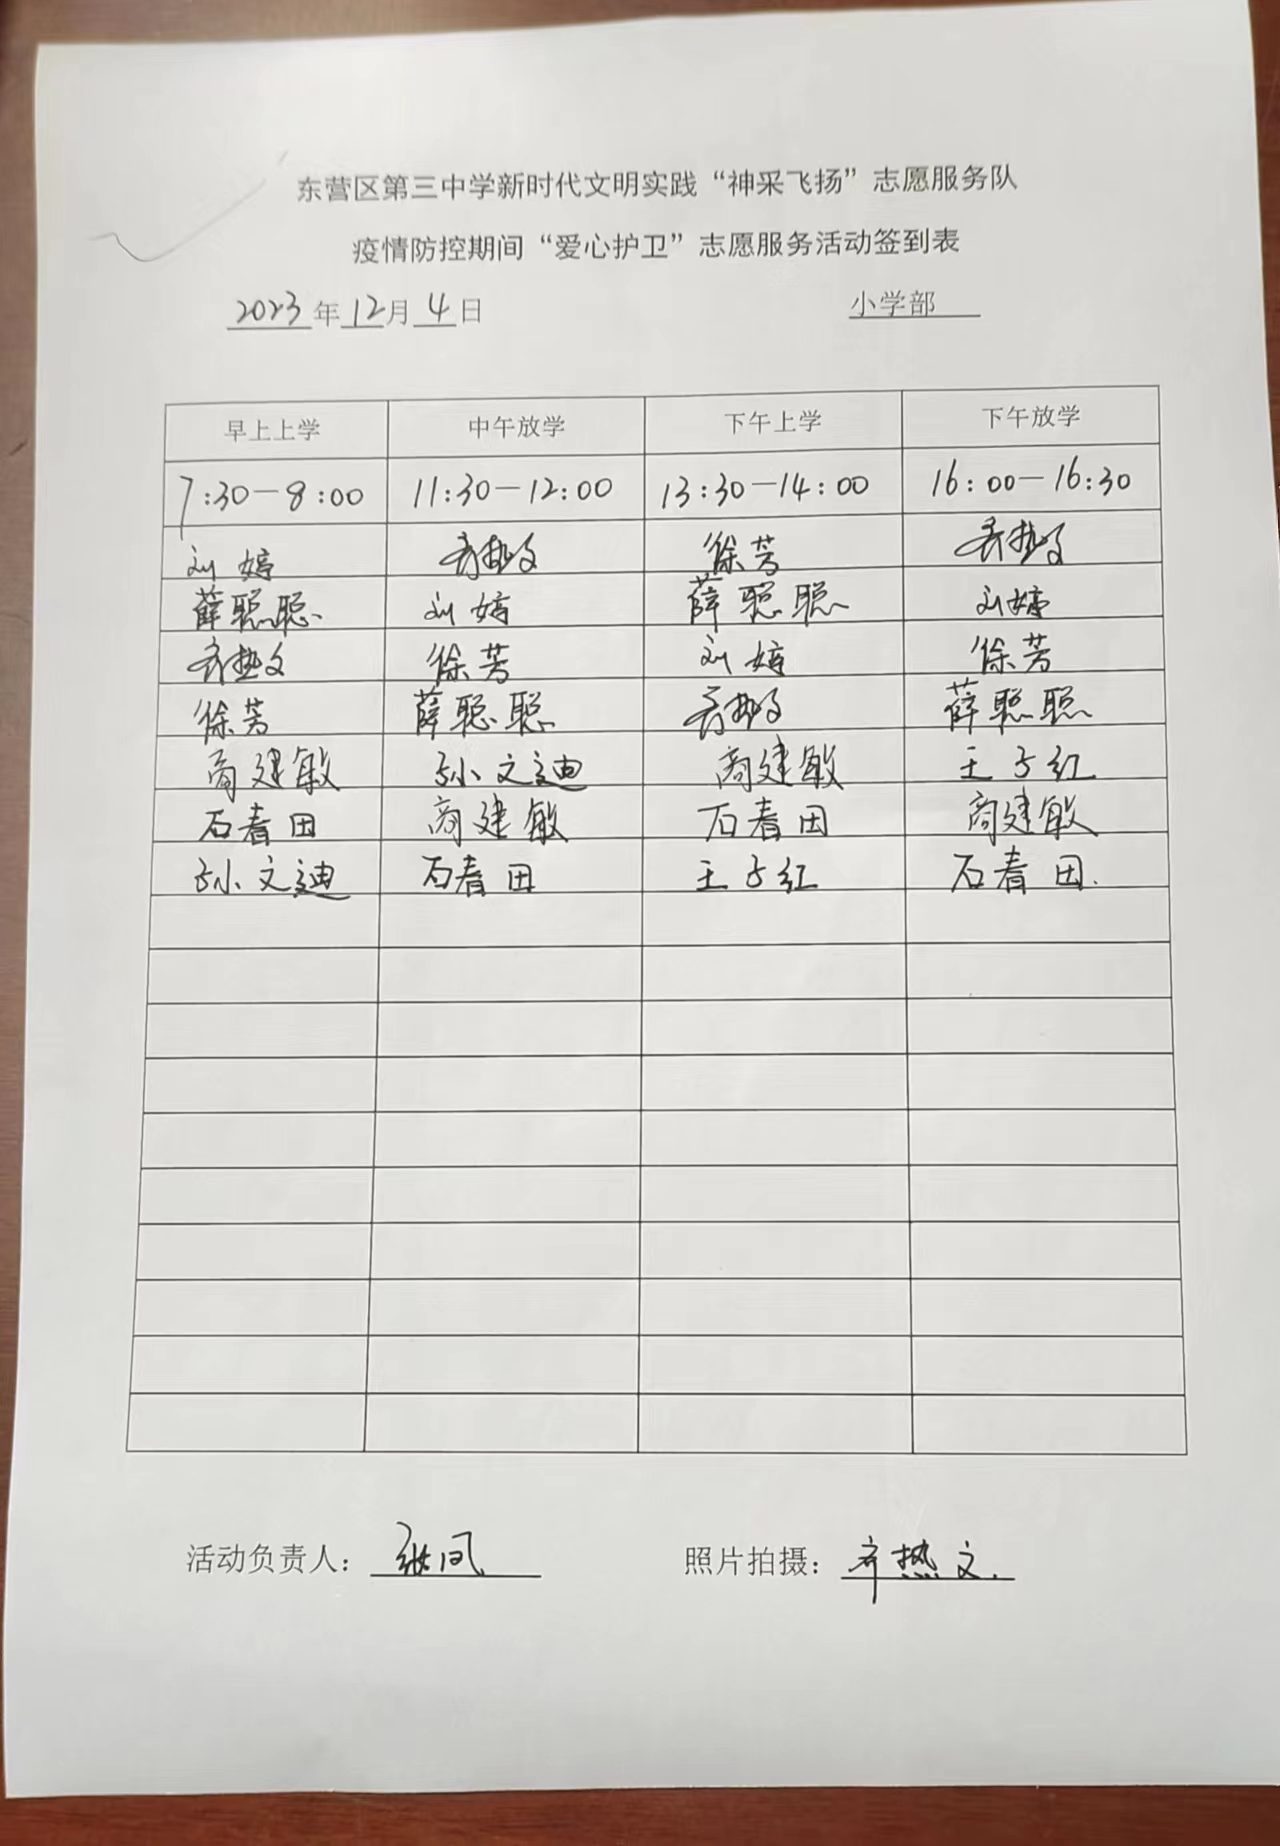 东营区第三中学新时代文明实践“神采飞扬”志愿服务队
疫情防控期间“爱心护卫”志愿服务活动签到表
2023年12月4日 小学部
早上上学 中午放学 下午上学 下午放学
7:30-8:00 11:30-12:00 13:30-14:00 16:00-16:30
刘婷 齐热文 徐芳 齐热文
薛聪聪 刘婷 薛聪聪 刘婷
齐热文 徐芳 刘婷 徐芳
徐芳 薛聪聪 齐热文 薛聪聪
商建敏 孙文迪 商建敏 王子红
石春田 商建敏 石春田 商建敏
孙文迪 石春田 王子红 石春田.
活动负责人：张凤 照片拍摄：齐热文.